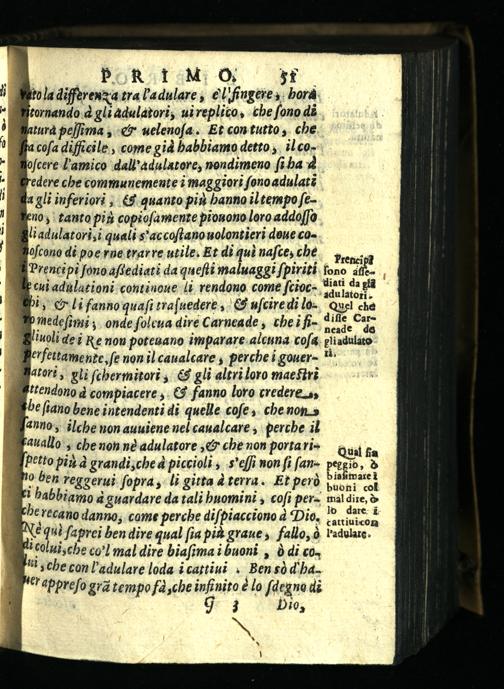 PRIMO. 51
uato la differenza tra l'adulare, e'l fingere, hora
ritornando à gli adulatori, ui replico, che sono di
natura pessima, & uelenosa. Et con tutto, che
sia cosa difficile, come già habbiamo detto, il co-
noscere l'amico dall'adulatore, nondimeno si ha à
credere che communemente i maggiori sono adulati
da gli inferiori, & quanto più hanno il tempo se-
reno, tanto più copiosamente piouono loro addosso
gli adulatori, i quali s'accostano uolontieri doue co-
noscono di poterne trarre utile. Et di quì nasce, che
i Prencipi sono assediati da questi maluaggi spiriti
le cui adulationi continoue li rendono come scioc-
chi, & li fanno quasi trasuedere, & uscire di lo-
ro medesimi; onde solcua dire Carneade, che i fi-
gliuoli de i Re non poteuano imparare alcuna cosa
perfettamente, se non il caualcare, perche i gouer-
natori, gli schermitori, & gli altri loro maestri
attendono à compiacere, & fanno loro credere,
che siano bene intendenti di quelle cose, che non
sanno, ilche non auuiene nel caualcare, perche il
cauallo, che non nè adulatore, & che non porta ri-
spetto più à grandi, che à piccioli, s'essi non si san-
no ben reggerui sopra, li gitta à terra. Et però
ci habbiamo à guardare da tali huomini, cosi per-
che recano danno, come perche dispiacciono à Dio.
Nè quì saprei ben dire qual sia più graue, fallo, ò
di colui, che co'l mal dire biasima i buoni, ò di co-
lui, che con l'adulare loda i cattiui. Ben sò d'ha-
uer appreso grã tempo fà, che infinito è lo sdegno di
G 3 Dio,
Prencipi
sono asse-
diati da gli
adulatori.
Quel che
disse Car-
neade de
gli adulato
ri.
Qual sia
peggio, ò
biasimare i
buoni col
mal dire, ò
lo dare i
cattiui con
l'adulare.